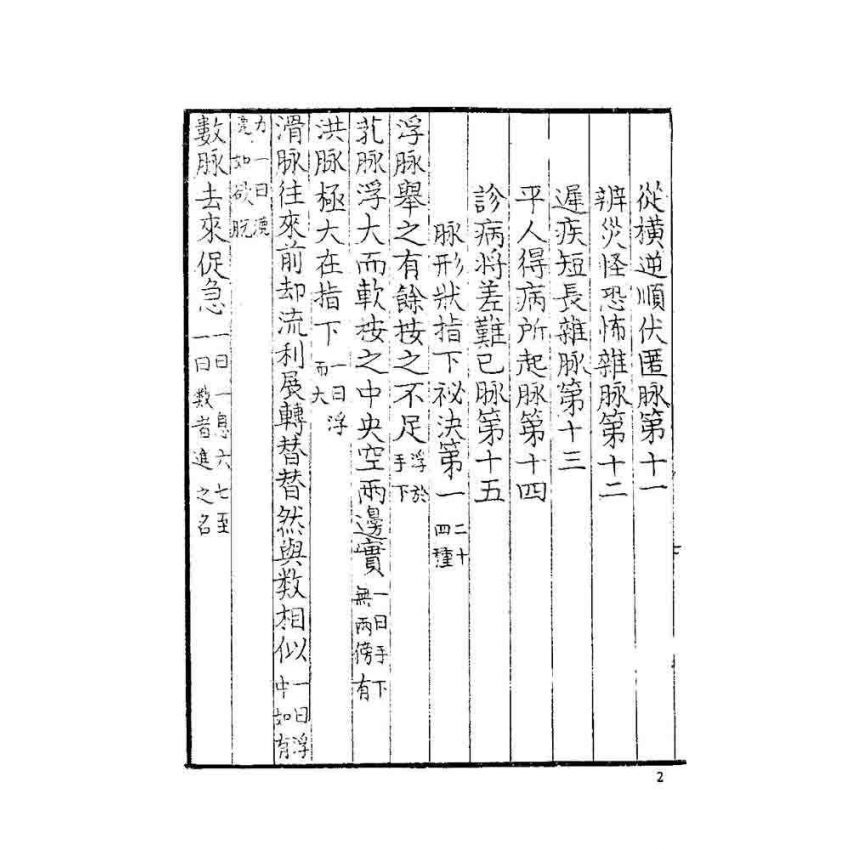 從橫逆順伏匿脉第十一
辨災怪恐怖雜脉第十二
遲疾短長雜脉第十三
平人得病所起脉第十四
診病將差難已脉第十五
脉形狀指下祕決第一二十四種
浮脉舉之有餘按之不足浮於手下
芤脉浮大而軟按之中央空兩邊實一曰手下無兩傍有
洪脉極大在指下一曰浮而大
滑脉往來前却流利展轉替替然與數相似一曰浮中如有
力一曰漉漉如欲脫
數脉去來促急一曰一息六七至一曰數者進之名
2